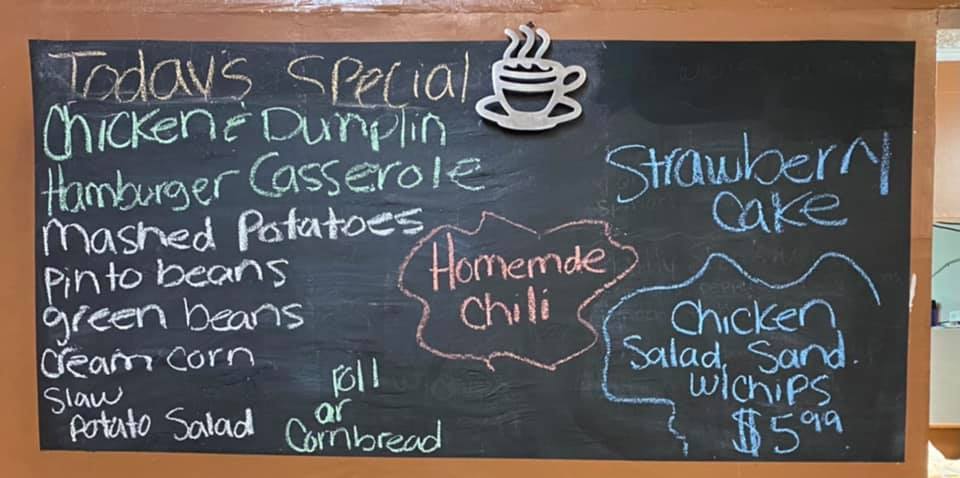 Today's Special
Chicken & Dumplin
Hamburger Casserole
Mashed Potatoes
pinto beans
green beans
cream corn
Slaw
Potato Salad
roll
or
Cornbread
Homemde
Chili
Strawberry
Cake
Chicken
Salad Sand.
w/chips
$5.99